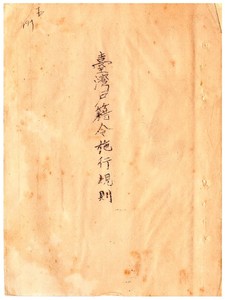 臺灣戸籍令施行規則